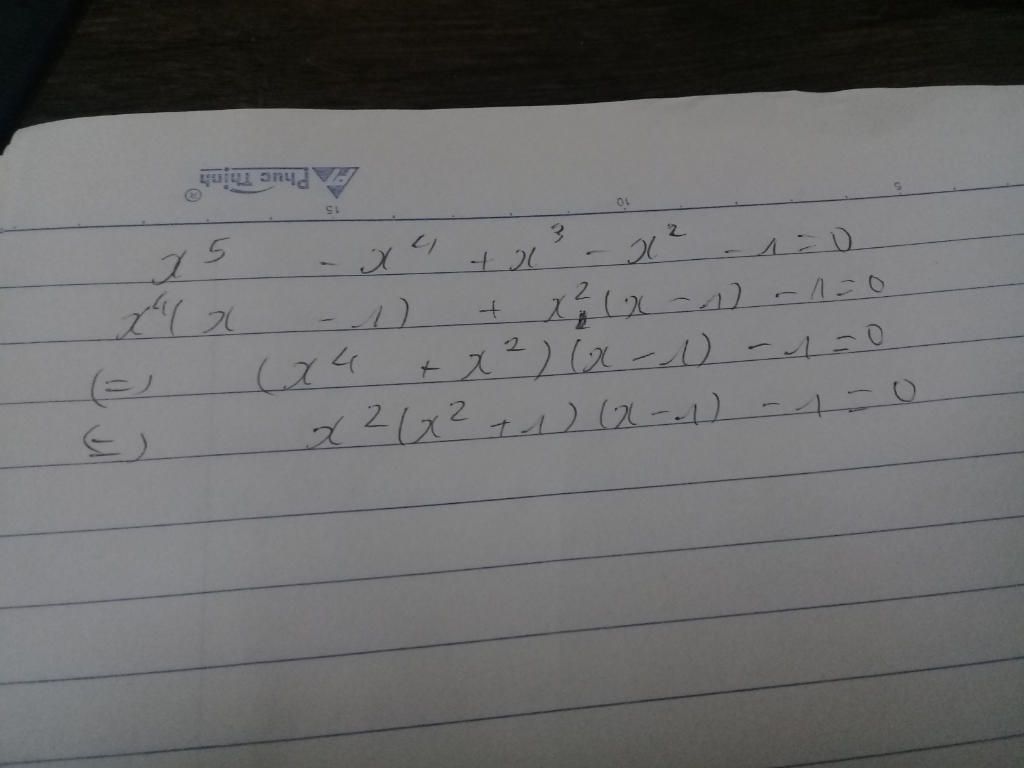 Phuc Thịnh ®
15 10 5
x⁵ - x⁴ + x³ - x² - 1 = 0
x⁴(x - 1) + x²(x - 1) - 1 = 0
(=) (x⁴ + x²)(x - 1) - 1 = 0
(=) x²(x² + 1)(x - 1) - 1 = 0